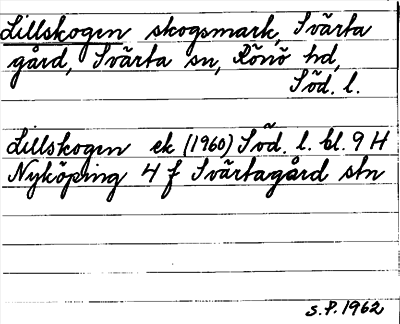 Lillskogen skogsmark, Svärta
gård, Svärta sn, Rönö hd,
Söd. l.
Lillskogen ek (1960) Söd. l. bl. 9 H
Nyköping 4 f Svärtagård stn
S.P. 1962